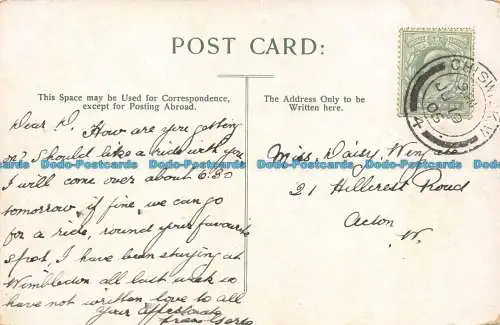 POST CARD:
This Space may be Used for Correspondence,
except for Posting Abroad.
The Address Only to be
Written here.
Dear D. How are you getting
on? Should like a ride with you
I will come over about 6.30
tomorrow if fine we can go
for a ride, round your favourite
spot, I have been staying at
Wimbledon all last week so
have not written love to all
your affectionate
from
Miss Daisy
21 Hillcrest Road
Acton
W.
CHISWICK.W
05
4
Dodo-Postcards Dodo-Postcards Dodo-Postcards Dodo-Postcards